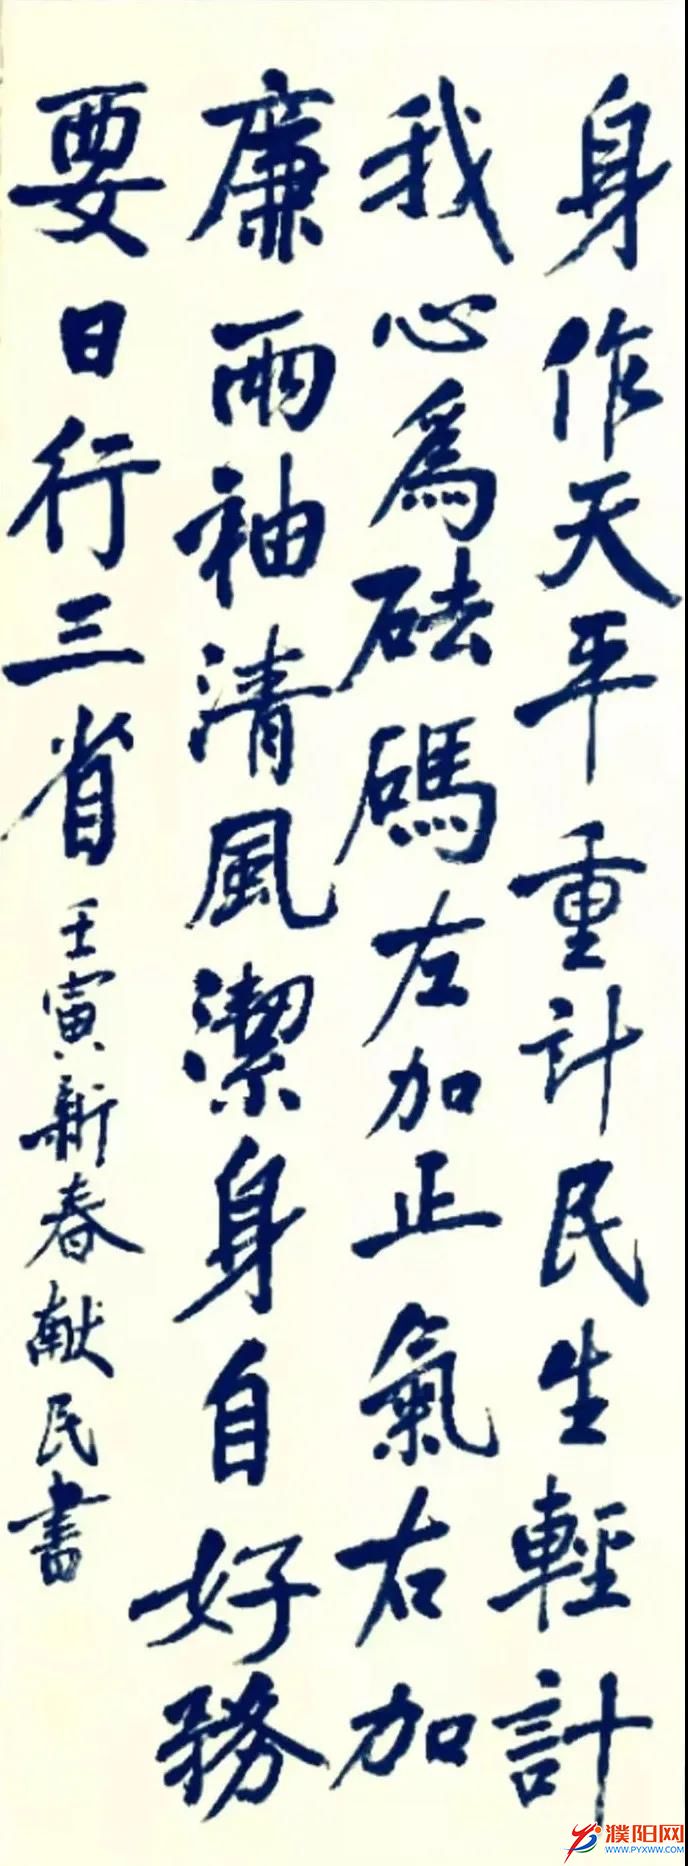 身作天平重計民生輕計
我心為砝碼左加正氣右加
廉兩袖清風潔身自好務
要日行三省
壬寅新春献民書
濮阳网
WWW.PYXWW.COM